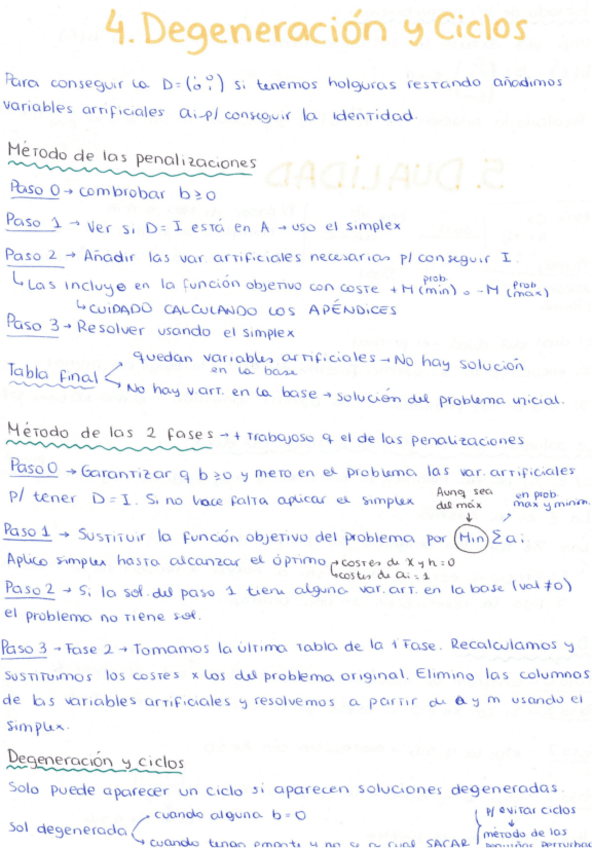 4. Degeneración y Ciclos
Para conseguir la D = (1 0 0 1) si tenemos holguras restando añadimos
variables artificiales ai p/ conseguir la identidad.
Método de las penalizaciones
Paso 0 → combrobar b ≥ 0
Paso 1 → Ver si D = I está en A → uso el simplex
Paso 2 → Añadir las var. artificiales necesarias p/ conseguir I.
↳ Las incluye en la función objetivo con coste +M (prob min) o -M (prob max)
↳ CUIDADO CALCULANDO LOS APÉNDICES
Paso 3 → Resolver usando el simplex
Tabla final
quedan variables artificiales en la base → No hay solución
No hay v art. en la base → solución del problema inicial.
Método de las 2 fases → + Trabajoso q el de las penalizaciones
Paso 0 → Garantizar q b ≥ 0 y meto en el problema las var. artificiales
p/ tener D = I. Si no hace falta aplicar el simplex
Aunq sea del máx
en prob max y minim.
Paso 1 → Sustituir la función objetivo del problema por Min Σ ai.
Aplico simplex hasta alcanzar el óptimo
→ costes de x y h = 0
→ costes de ai = 1
Paso 2 → Si la sol. del paso 1 tiene alguna var. art. en la base (val ≠ 0)
el problema no tiene sol.
Paso 3 → Fase 2 → Tomamos la última tabla de la 1ª Fase. Recalculamos y
sustituimos los costes x los del problema original. Elimino las columnas
de las variables artificiales y resolvemos a partir de a y m usando el
simplex.
Degeneración y ciclos
Solo puede aparecer un ciclo si aparecen soluciones degeneradas.
Sol degenerada
cuando alguna b = 0
cuando
SACAR
p/ evitar ciclos
↓
método de las